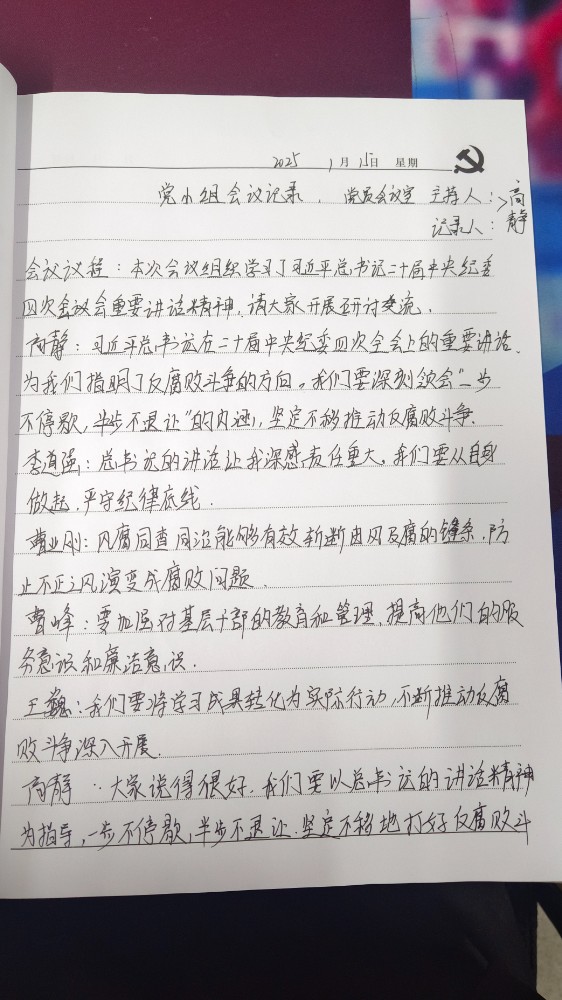 2025 1月15日 星期
党小组会议记录. 党员会议室 主持人: 高静
记录人:
会议议程: 本次会议组织学习了习近平总书记二十届中央纪委
四次会议会重要讲话精神, 请大家开展研讨交流.
高静: 习近平总书记在二十届中央纪委四次全会上的重要讲话,
为我们指明了反腐败斗争的方向。我们要深刻领会“一步
不停歇, 半步不退让”的内涵, 坚定不移推动反腐败斗争.
李道强: 总书记的讲话让我深感责任重大, 我们要从自身
做起, 严守纪律底线.
曹业刚: 风腐同查同治能够有效斩断由风及腐的链条, 防
止不正之风演变成腐败问题.
曹峰: 要加强对基层干部的教育和管理, 提高他们的服
务意识和廉洁意识.
王巍: 我们要将学习成果转化为实际行动, 不断推动反腐
败斗争深入开展.
高静: 大家说得很好, 我们要以总书记的讲话精神
为指导, 一步不停歇, 半步不退让, 坚定不移地打好反腐败斗